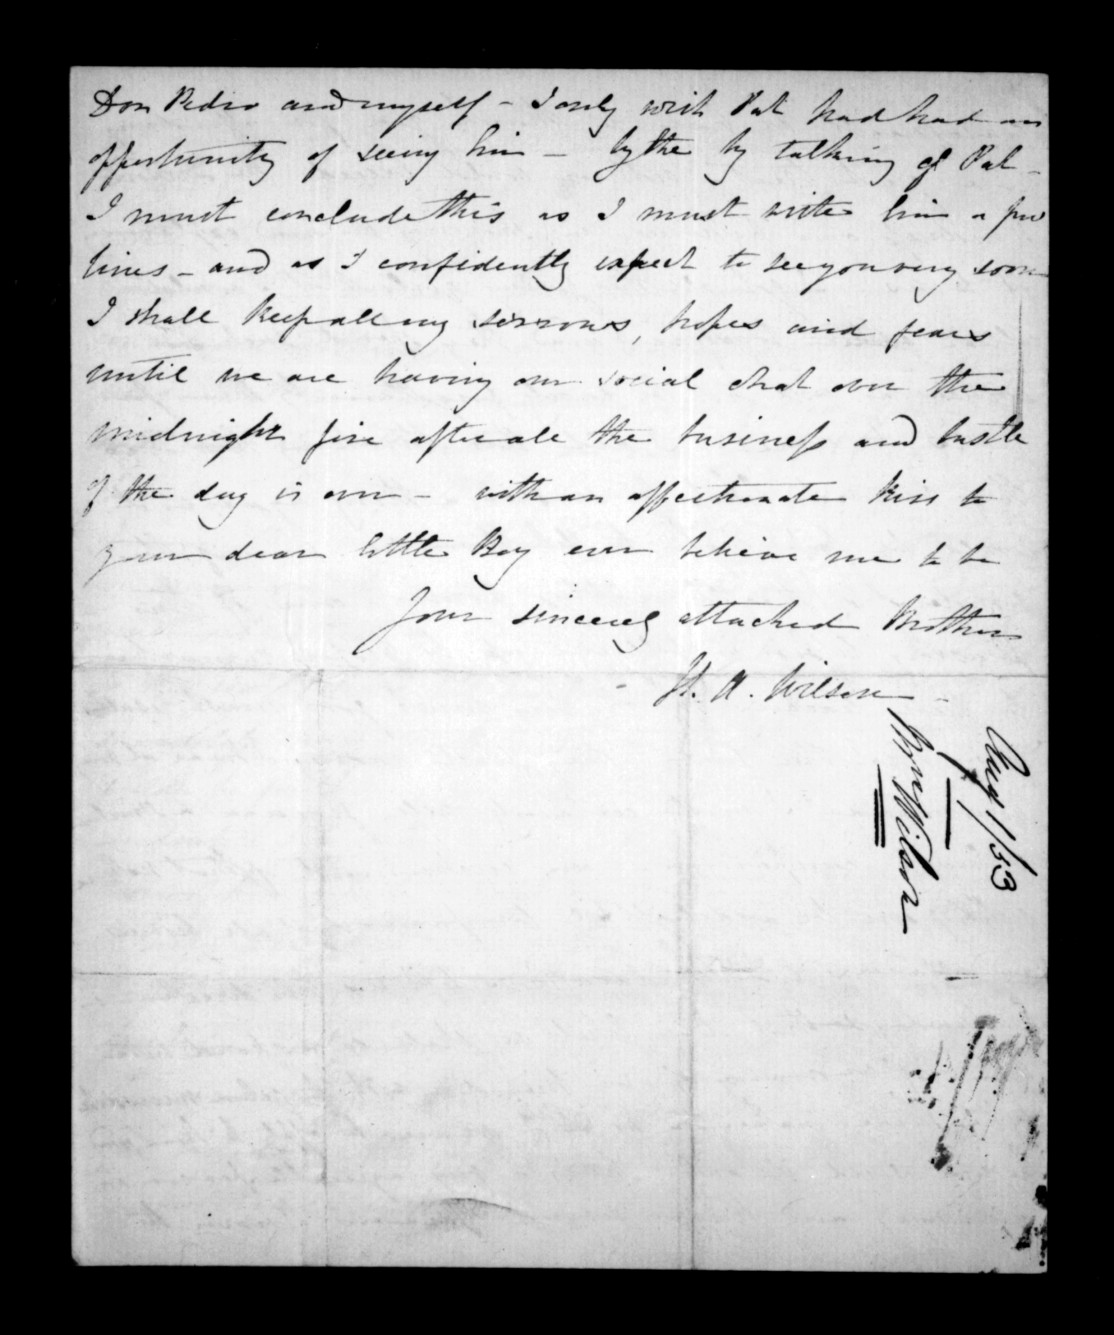 Don Pedro and myself - I only wish Pat had had an
opportunity of seeing him - by the by talking of Pat -
I must conclude this as I must write him a few
lines - and as I confidently expect to see you very soon
I shall keep all my sorrows, hopes and fears
until we are having our social chat over the
midnight fire after all the business and bustle
of the day is over - with an affectionate kiss to
your dear little Boy ever believe me to be
Your sincerely attached Brother
H. A. Wilson
Aug 1/53
Wilson